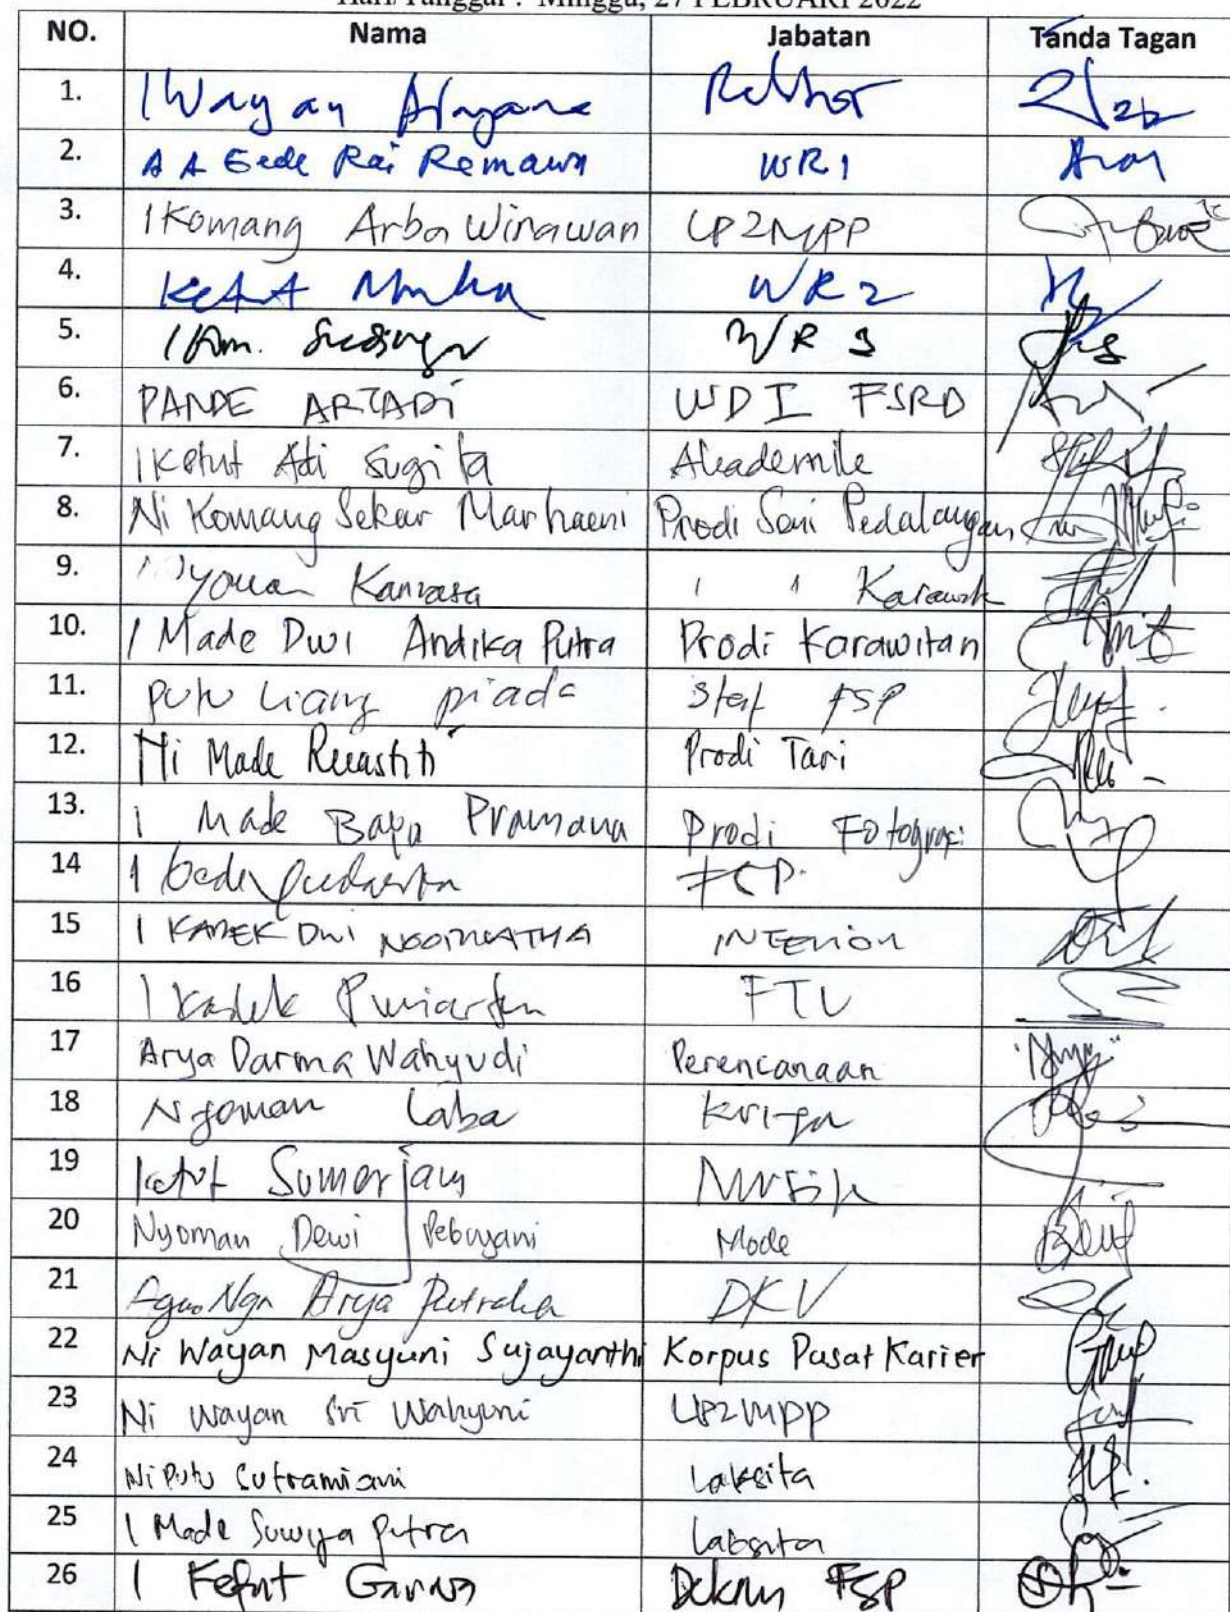 Hari/Tanggal : Minggu, 27 FEBRUARI 2022
NO. Nama Jabatan Tanda Tagan
1. I Wayan Rektor
2. A A Gede Rai Remawa WR1
3. I Komang Arba Winawan LP2MPP
4. Ketut Muka WR2
5. WR 3
6. PANDE ARTADI WD I FSRD
7. I Ketut Adi Sugita Akademik
8. Ni Komang Sekar Marhaeni Prodi Seni Pedalangan
9. Nyoman Karawit
10. I Made Dwi Andika Putra Prodi Karawitan
11. Putu Liang piada Staf FSP
12. Ni Made Ruastiti Prodi Tari
13. I Made Bayu Pramana Prodi Fotografi
14 I Gede
15 I KADEK DWI INTERIOR
16 I Kadek Puriartha FTV
17 Arya Darma Wahyudi Perencanaan
18 Nyoman Laba Kriya
19 Ketut Sumerjana Musik
20 Nyoman Dewi Pebryani Mode
21 Ngr Arya DKV
22 Ni Wayan Masyuni Sujayanthi Korpus Pusat Karier
23 Ni Wayan Sri Wahyuni LP2MPP
24 Ni Putu Sutramiani Laksita
25 I Made Suwija Putra Laksita
26 I Ketut Garwa Dekan FSP